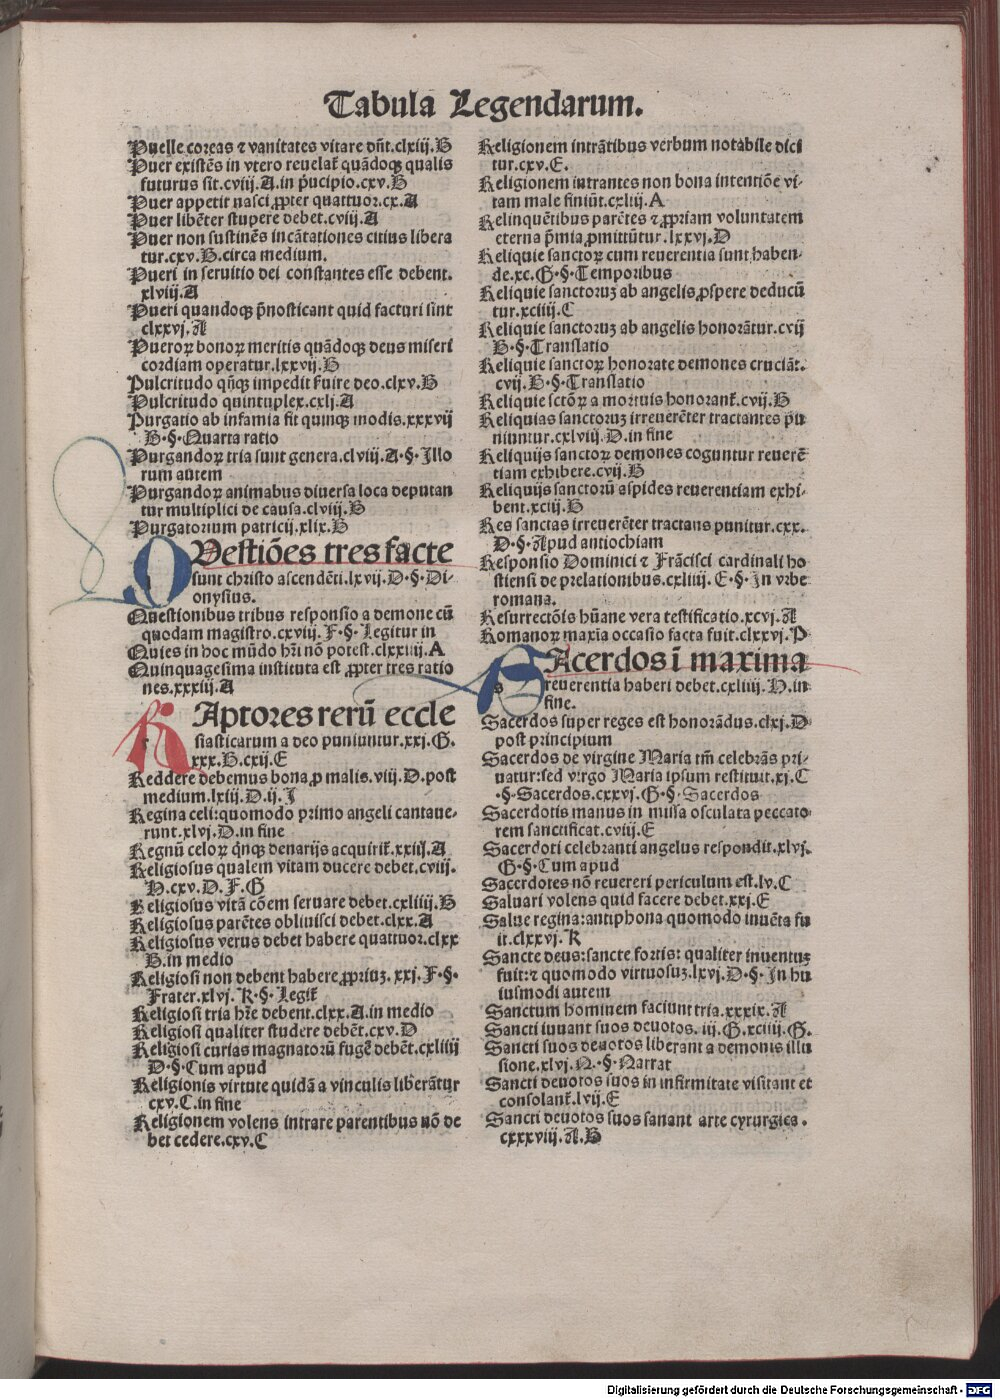 Tabula Legendarum.
Puelle coreas ⁊ vanitates vitare dn̄t.clxiij.B
Puer existēs in vtero reuelat᷑ quādoqꝫ qualis
futurus sit.cviij.A.in p̄ucipio.cxv.B
Puer appetit nasci ꝓpter quattuor.cx.A
Puer libēter stupere debet.cviij.A
Puer non sustinēs incātationes citius libera
tur.cxv.B.circa medium.
Pueri in seruitio dei constantes esse debent.
xlviij.A
Pueri quandoqꝫ p̄nosticant quid facturi sint
clxxvj.A
Pueroꝝ bonoꝝ meritis quādoqꝫ deus miseri
cordiam operatur.lxxvij.B
Pulcritudo qn̄qꝫ impedit fuire deo.clxv.B
Pulcritudo quintuplex.cxlj.A
Purgatio ab infamia fit quinqꝫ modis.xxxvij
B.§.Quarta ratio
Purgandoꝝ tria sunt genera.clviij.A.§.Illo
rum autem
Purgandoꝝ animabus diuersa loca deputan
tur multiplici de causa.clviij.B
Purgatorium patricij.xlix.B
QVestiōes tres facte
sunt christo ascendēti.lxvij.D.§.Di-
onysius.
Questionibus tribus responsio a demone cū
quodam magistro.cxviij.F.§.Legitur in
Quies in hoc mūdo hr̄i nō potest.clxxiiij.A
Quinquagesima instituta est ꝓpter tres ratio
nes.xxxiij.A
RAptores rerū eccle
siasticarum a deo puniuntur.xxj.G.
xxx.B.cxij.E
Reddere debemus bona ꝓ malis.viij.D.post
medium.lxiij.D.ij.I
Regina celi:quomodo primo angeli cantaue-
runt.xlvj.D.in fine
Regnū celoꝝ qn̄qꝫ denarijs acquirit᷑.xxiij.A
Religiosus qualem vitam ducere debet.cviij.
H.cxv.D.F.G
Religiosus vitā cōem seruare debet.cxliiij.B
Religiosus parētes obliuisci debet.clxx.A
Religiosus verus debet habere quattuor.clxx
B.in medio
Religiosi non debent habere ꝓpriuꝫ.xxj.F.§.
Frater.xlvj.K.§.Legit᷑
Religiosi tria hr̄e debent.clxx.A.in medio
Religiosi qualiter studere debēt.cxv.D
Religiosi curias magnatorū fugē debēt.cxliiij
D.§.Cum apud
Religionis virtute quidā a vinculis liberātur
cxv.C.in fine
Religionem volens intrare parentibus nō de
bet cedere.cxv.C
Religionem intrātibus verbum notabile dici
tur.cxv.E.
Religionem intrantes non bona intentiōe vi-
tam male finiūt.cxliij.A
Relinquētibus parētes ⁊ ꝓpriam voluntatem
eterna p̄mia ꝓmittūtur.lxxvj.D
Reliquie sanctoꝝ cum reuerentia sunt haben-
de.xc.G.§.Temporibus
Reliquie sanctoruꝫ ab angelis ꝓspere deducū
tur.xciiij.C
Reliquie sanctoruꝫ ab angelis honorātur.cvij
B.§.Translatio
Reliquie sanctoꝝ honorate demones cruciāt.
cvij.B.§.Translatio
Reliquie sctōꝝ a mortuis honorant᷑.cvij.B
Reliquias sanctoruꝫ irreuerēter tractantes pu
niuntur.cxlviij.D.in fine
Reliquijs sanctoꝝ demones coguntur reuerē
tiam exhibere.cvij.B
Reliquijs sanctorū aspides reuerentiam exhi-
bent.xcij.B
Res sanctas irreuerēter tractans punitur.cxx.
D.§.Apud antiochiam
Responsio Dominici ⁊ Frācisci cardinali ho
stiensi de prelationibus.cxliiij.E.§.In vrbe
romana.
Resurrectōis hūane vera testificatio.xcvj.A
Romanoꝝ maxīa occasio facta fuit.clxxvj.P
SAcerdos ī maxima
reuerentia haberi debet.cxliiij.H.in
fine.
Sacerdos super reges est honorādus.clxj.D.
post principium
Sacerdos de virgine Maria tm̄ celebrās pri-
uatur:sed virgo Maria ipsum restituit.xj.C
.§.Sacerdos.cxxvj.G.§.Sacerdos
Sacerdotis manus in missa osculata peccato-
rem sanctificat.cviij.E
Sacerdoti celebranti angelus respondit.xlvj.
G.§.Cum apud
Sacerdotes nō reuereri periculum est.lv.C
Saluari volens quid facere debet.xxj.E
Salue regina:antiphona quomodo inuēta fu
it.clxxvj.K
Sancte deus:sancte fortis: qualiter inuentuꝫ
fuit:⁊ quomodo virtuosuꝫ.lxvj.D.§.In hu
iusmodi autem
Sanctum hominem faciunt tria.xxxix.A
Sancti iuuant suos deuotos.iij.G.xciiij.G.
Sancti suos deuotos liberant a demonis illu
sione.xlvj.N.§.Narrat
Sancti deuotos suos in infirmitate visitant et
consolant᷑.lvij.E
Sancti deuotos suos sanant arte cyrurgica.
cxxxviij.A.B
Digitalisierung gefördert durch die Deutsche Forschungsgemeinschaft - DFG